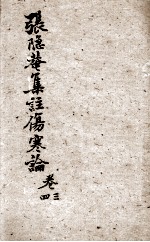 張隐菴集註傷寒論
卷三四